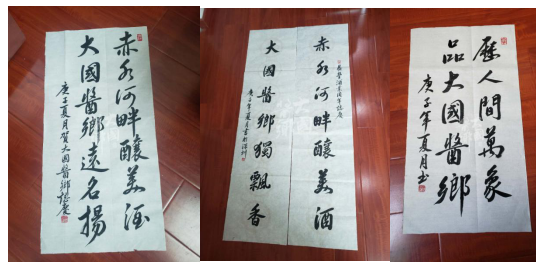 赤水河畔釀美酒
大國醬鄉遠名揚
庚子夏月賀大國醬鄉誌慶
赤水河畔釀美酒
大國醬鄉獨飄香
歷人間萬象
品大國醬鄉
庚子年夏月書